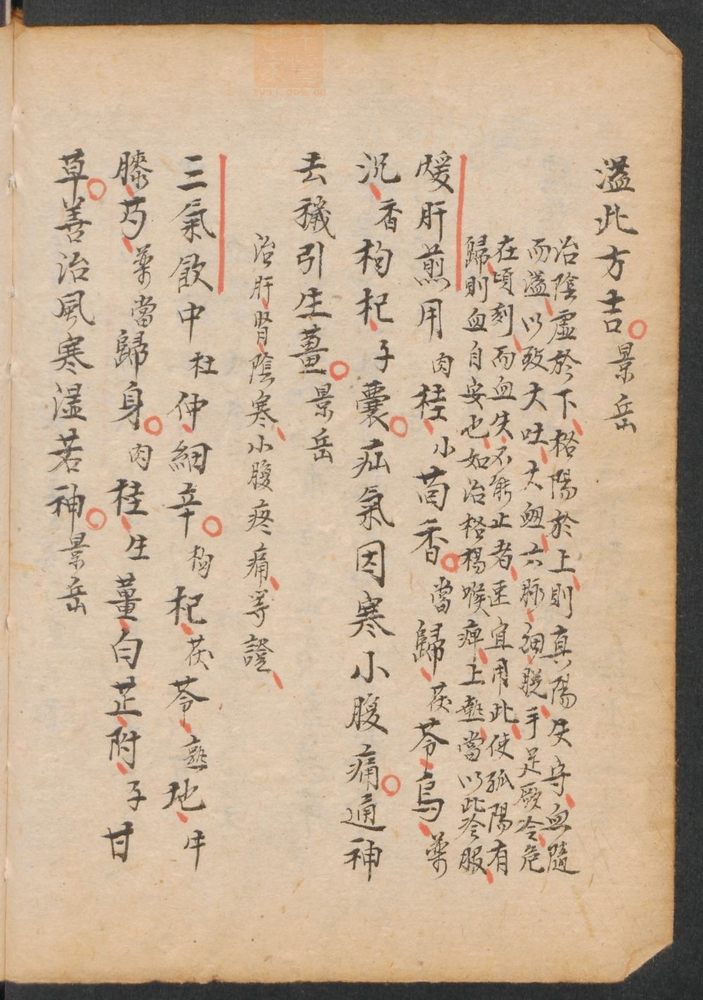 溢此方吉景岳
治陰虛於下格陽於上則真陽失守血隨
而溢以致大吐大衄六脉細脫手足厥冷危
在頃刻而血失不能止者速宜用此使孤陽有
歸則血自安也如治格楊喉痺上熱當以此冷服
煖肝煎用肉桂小茴香當歸茯苓烏藥
沉香枸杞子囊疝氣因寒小腹痛通神
去穢引生薑景岳
治肝腎陰寒小腹疼痛等證
三氣飲中杜仲細辛枸杞茯苓熟地牛
膝芍藥當歸身肉桂生薑白芷附子甘
草善治風寒濕若神景岳